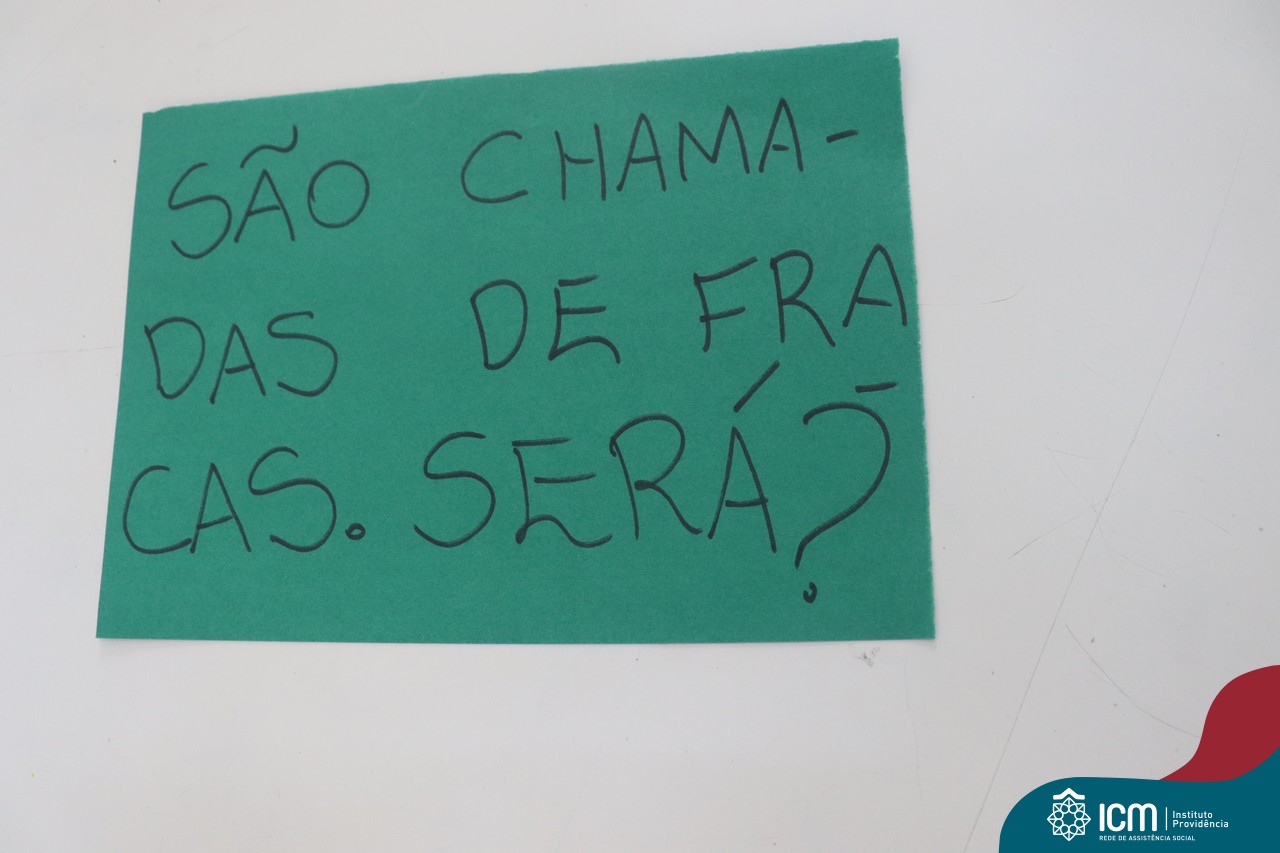 SÃO CHAMA-
DAS DE FRA-
CAS. SERÁ?
ICM
Instituto
Providência
REDE DE ASSISTÊNCIA SOCIAL